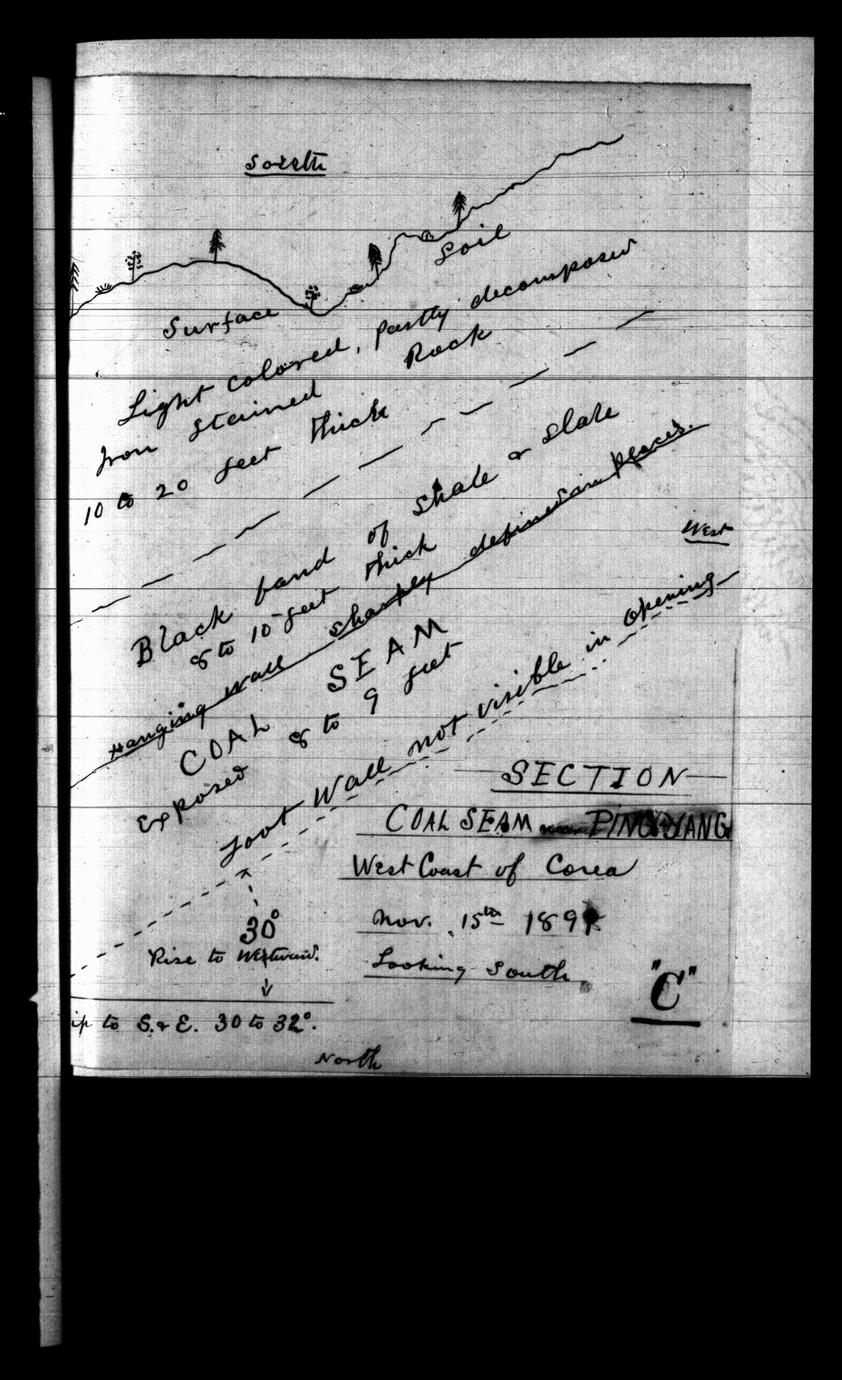 South
Soil
Surface
Light colored, partly decomposed
Iron stained Rock
10 to 20 feet thick
Black band of Shale & Slate
8 to 10 feet thick
Hanging Wall sharply defined in places.
West
COAL SEAM
Exposed 8 to 9 feet
Foot Wall not visible in opening
SECTION
COAL SEAM near PING YANG
West Coast of Corea
Nov. 15th 189
Looking South
30°
Rise to Westward.
"C"
ip to S. & E. 30 to 32°.
North